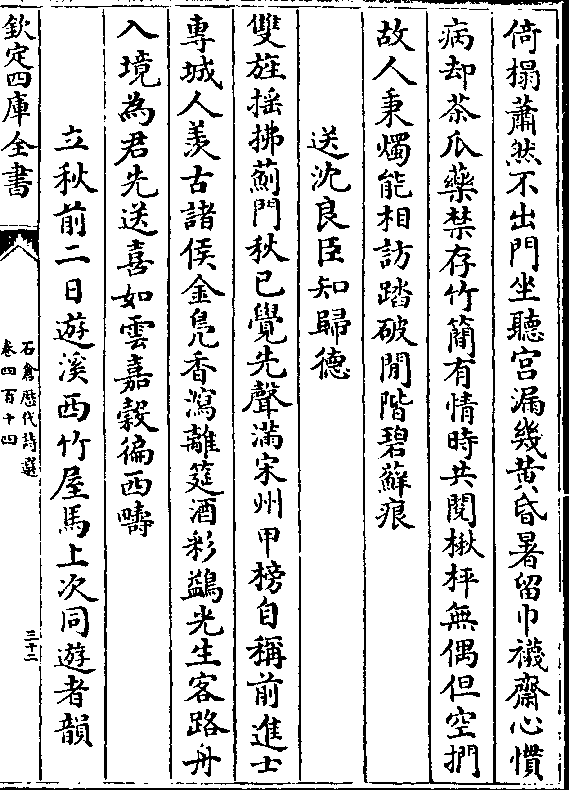 倚榻蕭然不出門坐聽宫漏幾黄昏暑留巾襪齋心慣
病却茶瓜藥禁存竹簡有情時共閱楸枰無偶但空捫
故人秉燭能相訪踏破閒階碧蘚痕
送沈良臣知歸德
雙旌揺拂薊門秋已覺先聲滿宋州甲榜自稱前進士
專城人羡古諸侯金鳬香瀉離筵酒彩鷁光生客路舟
入境為君先送喜如雲嘉榖徧西疇
立秋前二日遊溪西竹屋馬上次同遊者韻
欽定四庫全書
石倉歴代詩選
卷四百十四
三十二